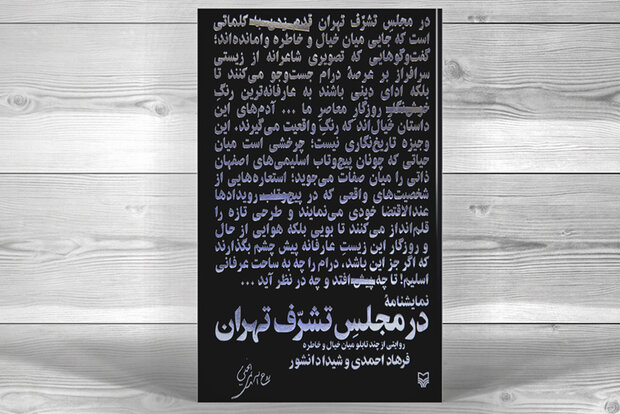 در مجلس تشرّف تهران قدم‌زدن کلماتی
است که جایی میان خیال و خاطره وامانده‌اند؛
گفت‌وگوهایی که تصویری شاعرانه از زیستی
سرافراز بر عرصهٔ درام جست‌وجو می‌کنند تا
بلکه ادای دینی باشند به عارفانه‌ترین رنگِ
روزگار معاصرِ ما ... آدم‌های این
داستان خیال‌اند که رنگِ واقعیت می‌گیرند. این
وجیزه تاریخ‌نگاری نیست؛ چرخشی است میان
حیاتی که چونان پیچ‌وتاب اسلیمی‌های اصفهان
ذاتی را میان صفات می‌جوید؛ استعاره‌هایی از
شخصیت‌های واقعی که در پیچ‌وتاب رویدادها
عندالاقتضا خودی می‌نمایند و طرحی تازه را
قلم‌انداز می‌کنند تا بویی بلکه هوایی از حال
و روزگار این زیستِ عارفانه پیش چشم بگذارند
که اگر جز این باشد، درام را چه به ساحت عرفانی
اسلیم! تا چه پیش افتد و چه در نظر آید ...
نمایشنامهٔ
در مجلسِ تشرّف تهران
روایتی از چند تابلو میان خیال و خاطره
فرهاد احمدی و شیدا دانشور